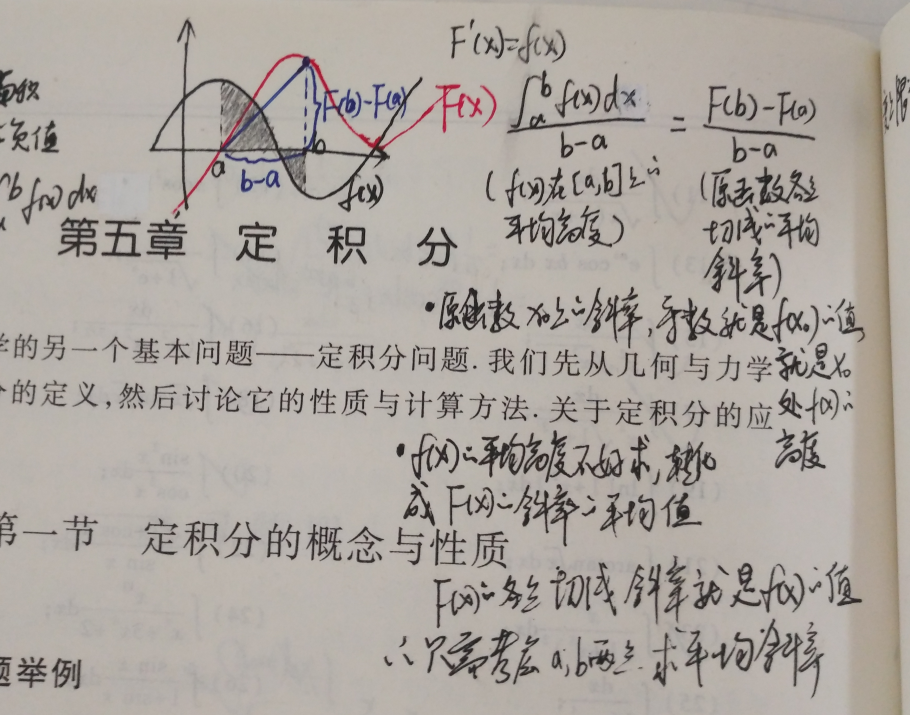 F'(x)=f(x)
面积
负值
∫ᵇ f(x) dx
F(b)-F(a)
F(x)
a
b
b-a
f(x)
∫ₐᵇ f(x)dx / b-a = F(b)-F(a) / b-a
(f(x)在[a,b]上的平均高度)
(原函数各点切线的平均斜率)
第五章 定 积 分
·原函数x₀点的斜率,导数就是f(x₀)的值
就是x₀处f(x)的高度
学的另一个基本问题——定积分问题.我们先从几何与力学
的定义,然后讨论它的性质与计算方法.关于定积分的应
·f(x)的平均高度不好求,转化
成F(x)的斜率的平均值
第一节 定积分的概念与性质
F(x)的各点切线斜率就是f(x)的值
∴只需考虑a,b两点.求平均斜率
题举例